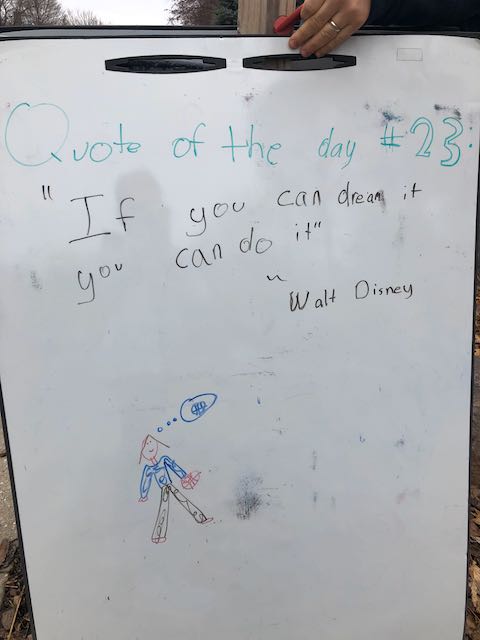 Quote of the day #23:
"If you can dream it
you can do it"
~ Walt Disney